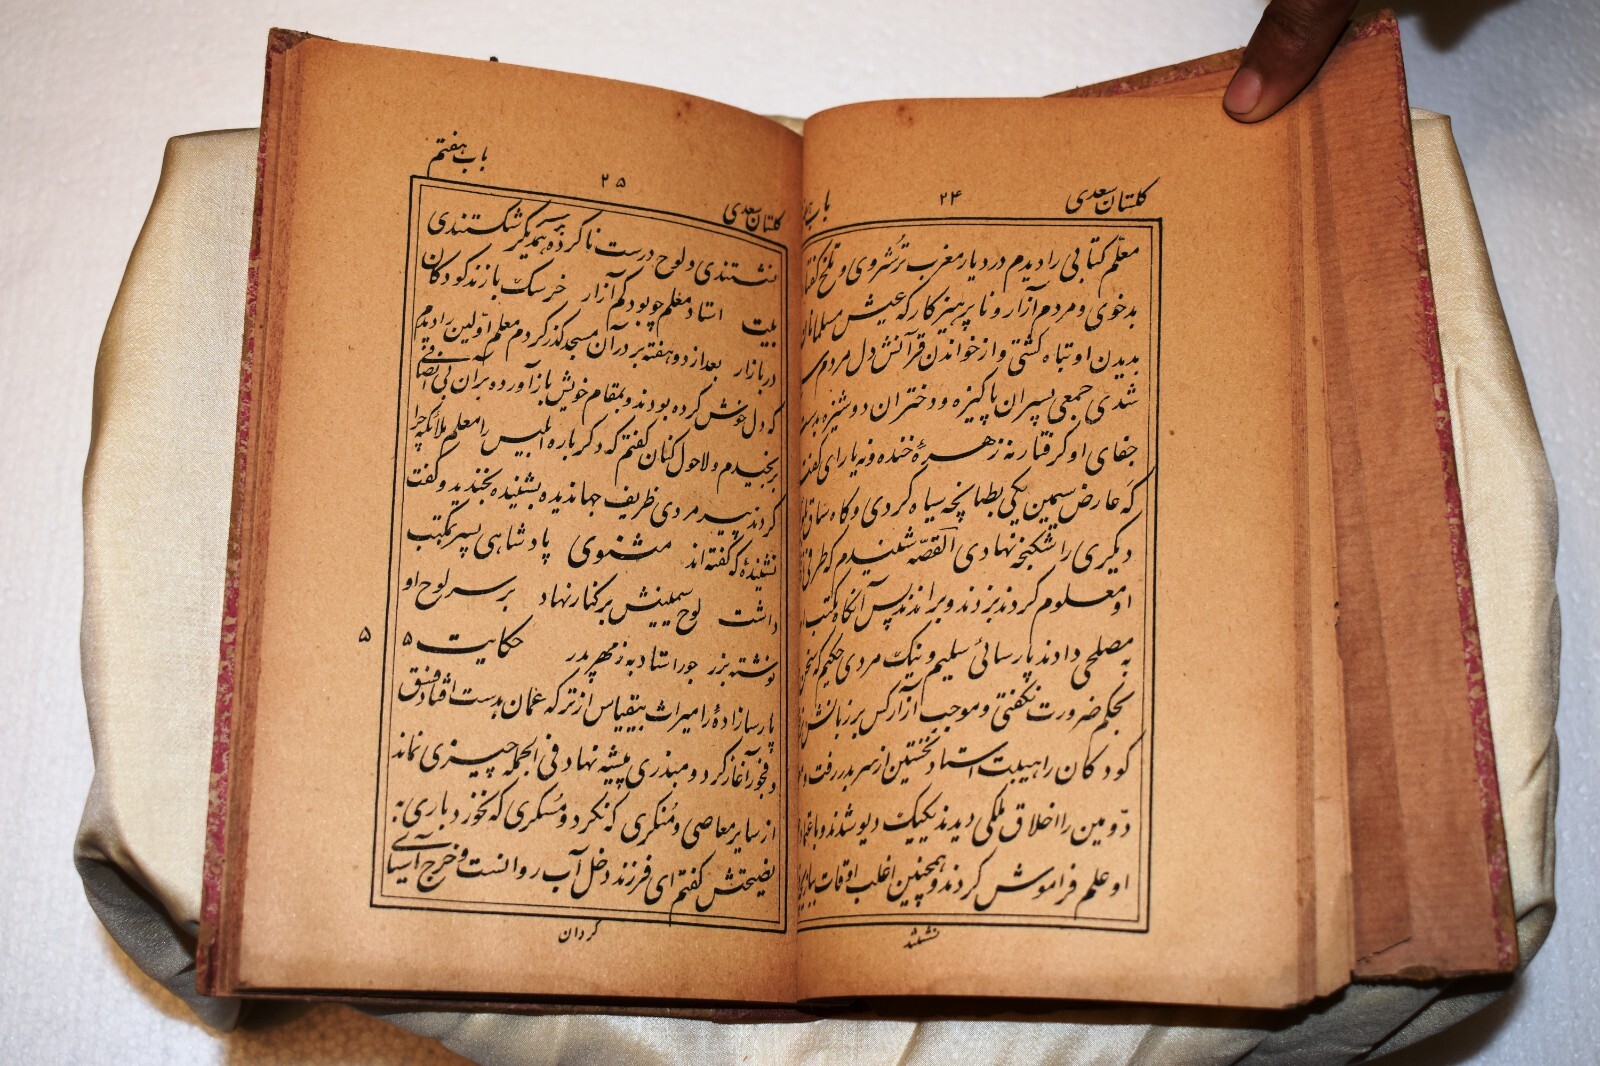 گلستان سعدی
۲۴
باب
معلّم کتابی را دیدم در دیار مغرب ترُشروی و تلخ
بدخوی و مردم آزار و ناپرهیزکار که عیش مسلمانان
بدیدن او تباه گشتی و از خواندن قرآنش دل مردم
شدی جمعی پسران پاکیزه و دختران دوشیزه
جفای او گرفتار نه زهرهٔ خنده و نه یارای
که عارض سیمین یکی بطپانچه سیاه کردی و گاه ساق
دیگری را شکنجه نهادی القصّه شنیدم که طرفی
او معلوم کردند بزدند و براندند پس آنگاه مکتب
به مصلحی دادند پارسائی سلیم و نیک مردی حکیم که
بحکم ضرورت نگفتی و موجب آزار کس بر زبانش
کودکان را هیبت استاد نخستین از سر بدر رفت و
دوّمین را اخلاق ملکی دیدند یکیک دیو شدند و
او علم فراموش کردند و همچنین اغلب اوقات
نشستند
باب هفتم
۲۵
گلستان سعدی
بنشستندی و لوح درست ناکرده بر سر همدیگر شکستندی
بیت استاد معلم چو بود کم آزار خرسک بازند کودکان
در بازار بعد از دو هفته بر در آن مسجد گذر کردم معلم اوّلین را دیدم
که دل خوش کرده بودند و بمقام خویش باز آورده بر آن بی انصافی
برنجیدم و لاحول کنان گفتم که دگر باره ابلیس را معلم ملائکه چرا
کردند پیر مردی ظریف جهاندیده بشنیده بخندید و گفت
نشنیدهٔ که گفته اند مثنوی پادشاهی پسر بمکتب
داشت لوح سیمینش بر کنار نهاد بر سر لوح او
نوشته بزر جور استاد به ز مهر پدر حکایت ۵
۵
پارسازادهٔ را میراث بیقیاس از ترکه عمّان بدست افتاد فسق
و فجور آغاز کرد و مبذری پیشه نهاد فی الجمله چیزی نماند
از سایر معاصی و مُنکری که نکرد و مُسکری که نخورد باری به
نصیحتش گفتم ای فرزند دخل آب روانست و خرج آسیای
گردان